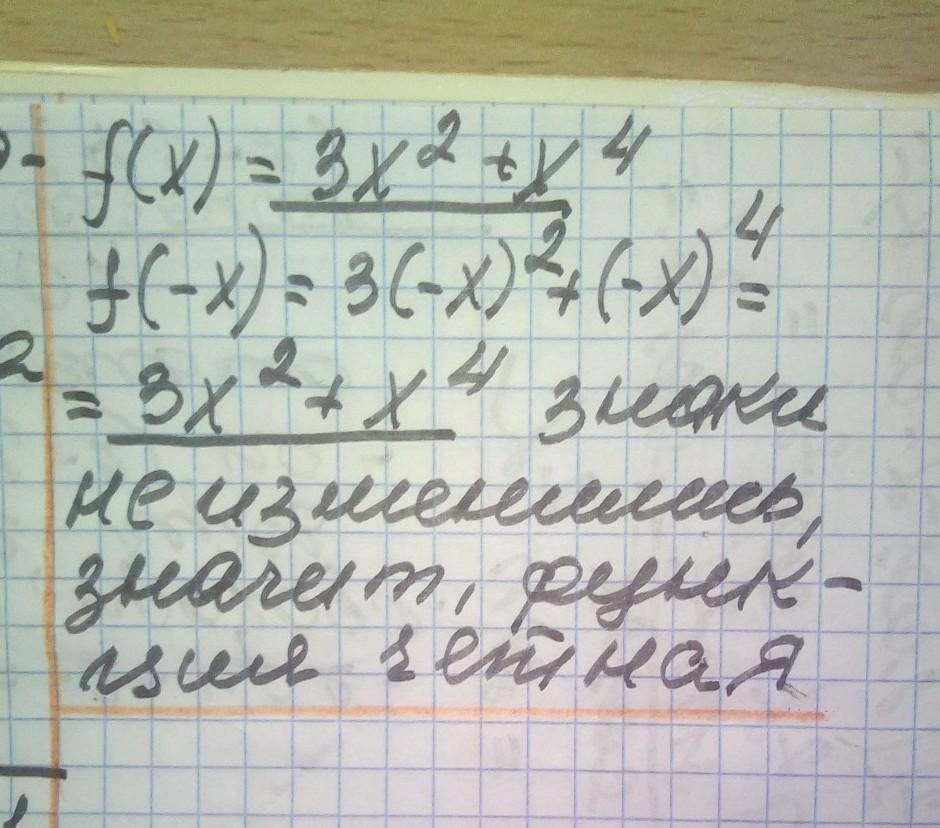 f(x) = 3x² + x⁴
f(-x) = 3(-x)² + (-x)⁴ =
= 3x² + x⁴ знаки
не изменились,
значит, функ-
ция четная